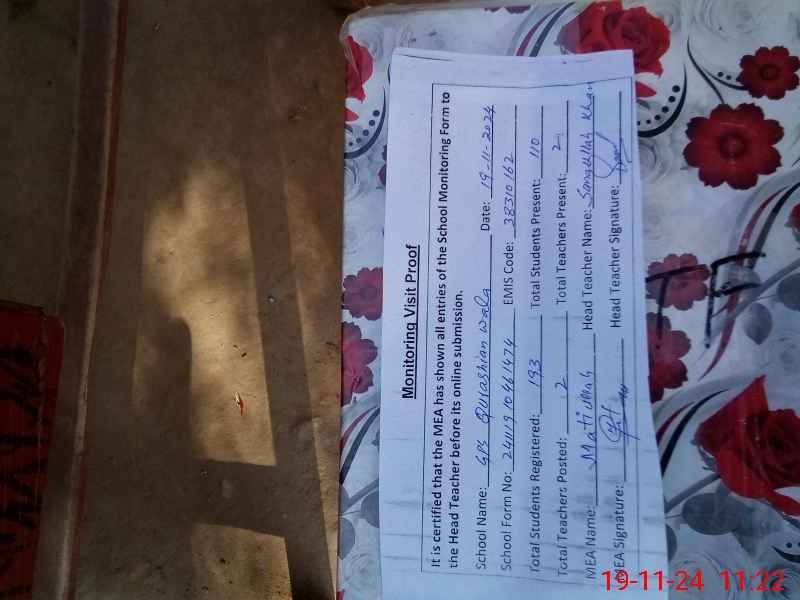 Monitoring Visit Proof
It is certified that the MEA has shown all entries of the School Monitoring Form to
the Head Teacher before its online submission.
School Name: GPS Qurashian wala Date: 19-11-2024
School Form No: 24111910461474 EMIS Code: 38310162
Total Students Registered: 193 Total Students Present: 110
Total Teachers Posted: 2 Total Teachers Present: 2
MEA Name: Matiullah Head Teacher Name: Samiullah Khan
MEA Signature: Head Teacher Signature:
19-11-24 11:22